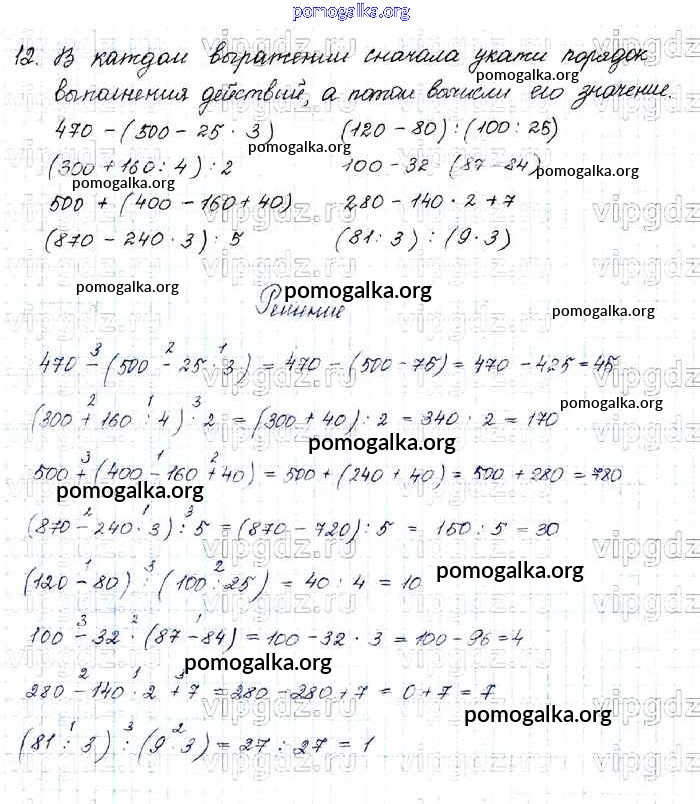 pomogalka.org
12. В каждом выражении сначала укажи порядок
pomogalka.org
выполнения действий, а потом вычисли его значение.
470 - (500 - 25 · 3) (120 - 80) : (100 : 25)
pomogalka.org
(300 + 160 : 4) : 2 100 - 32 · (87 - 84)
pomogalka.org pomogalka.org
500 + (400 - 160 + 40) 280 - 140 · 2 + 7
pomogalka.org
(870 - 240 · 3) : 5 (81 : 3) : (9 · 3)
vipgdz.ru
pomogalka.org pomogalka.org pomogalka.org
Решение
3 2 1
470 - (500 - 25 · 3) = 470 - (500 - 75) = 470 - 425 = 45
2 1 3
(300 + 160 : 4) : 2 = (300 + 40) : 2 = 340 : 2 = 170
pomogalka.org
pomogalka.org
3 1 2
500 + (400 - 160 + 40) = 500 + (240 + 40) = 500 + 280 = 780
pomogalka.org
2 1 3
(870 - 240 · 3) : 5 = (870 - 720) : 5 = 150 : 5 = 30
1 3 2
(120 - 80) : (100 : 25) = 40 : 4 = 10
pomogalka.org
3 2 1
100 - 32 · (87 - 84) = 100 - 32 · 3 = 100 - 96 = 4
pomogalka.org
2 1 3
280 - 140 · 2 + 7 = 280 - 280 + 7 = 0 + 7 = 7
pomogalka.org
1 3 2
(81 : 3) : (9 · 3) = 27 : 27 = 1